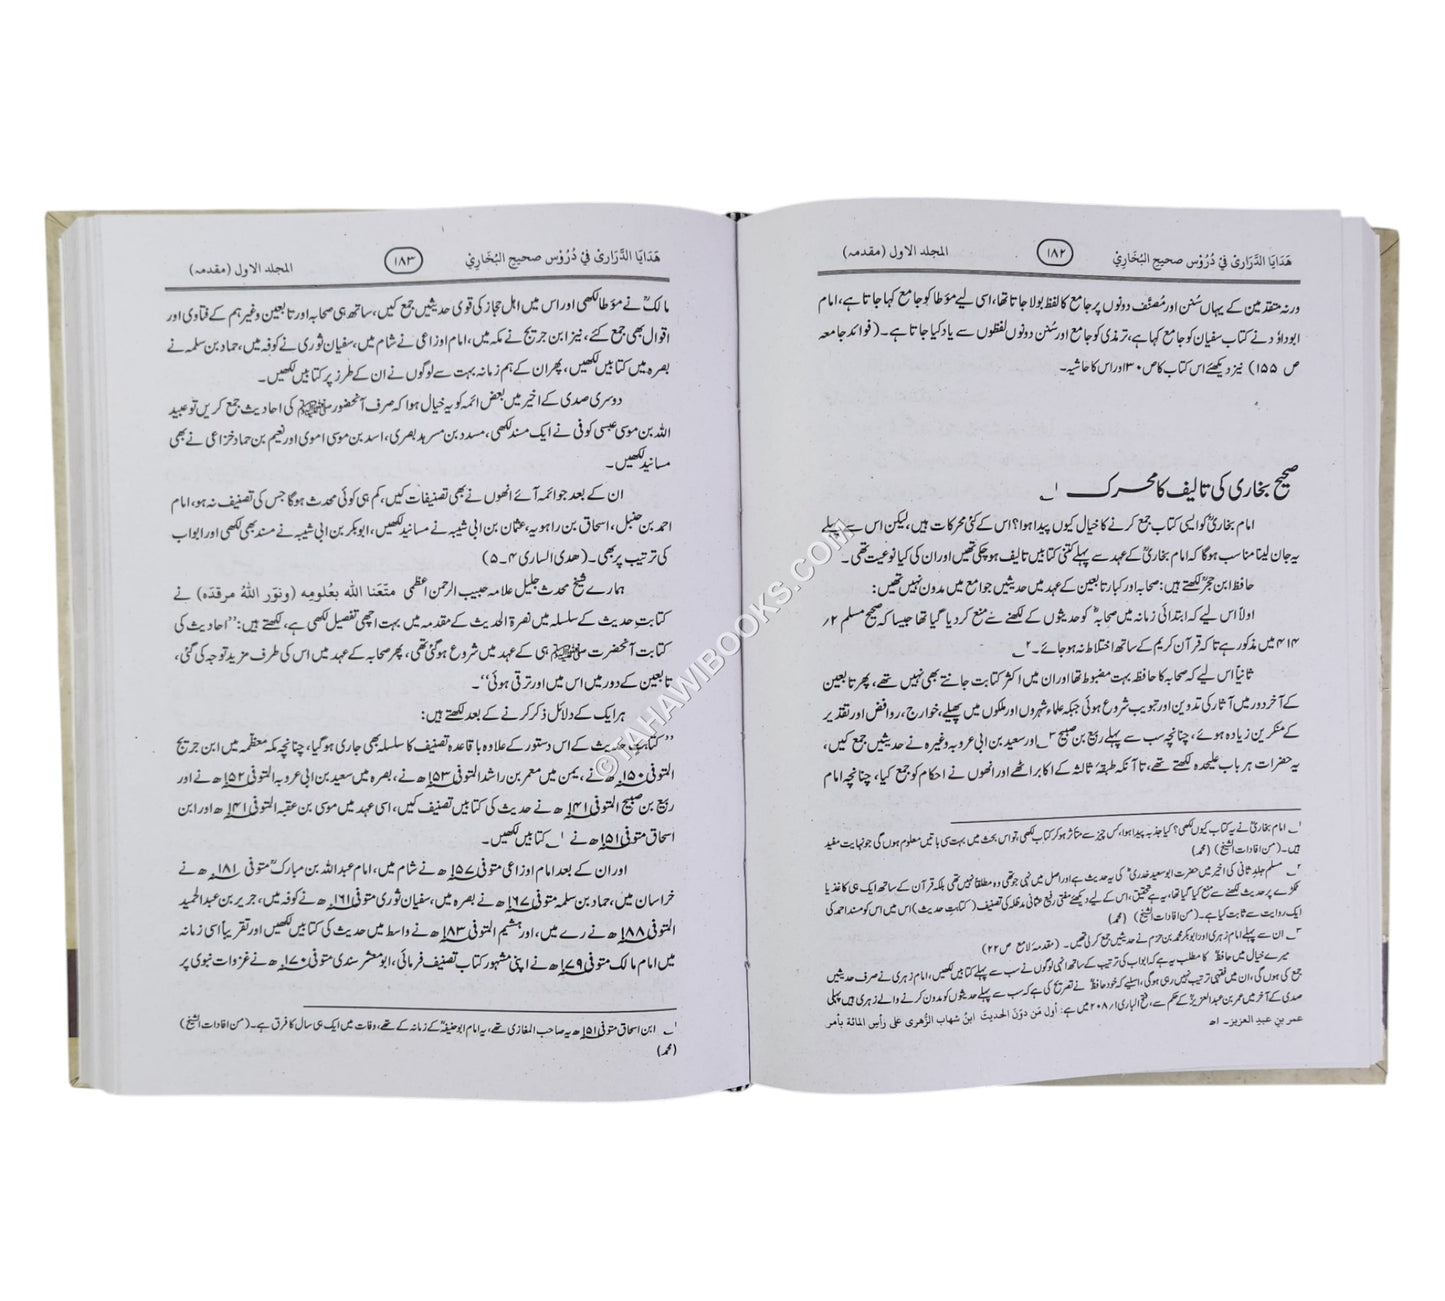 هَدَايَا الدَّرَارِيْ فِيْ دُرُوْس صحيح البُخَارِيْ
۱۸۲
المجلد الاول (مقدمہ)
ورنہ متقدمین کے یہاں سُنن اور مُصنَّف دونوں پر جامع کا لفظ بولا جاتا تھا، اسی لیے مؤطا کو جامع کہا جاتا ہے، امام
ابوداؤد نے کتاب سفیان کو جامع کہا ہے، ترمذی کو جامع اور سُنن دونوں لفظوں سے یاد کیا جاتا ہے۔ (فوائد جامعہ
ص ۱۵۵) نیز دیکھئے اس کتاب کا ص ۳۰ اور اس کا حاشیہ۔
صحیح بخاری کی تالیف کا محرک ۱؎
امام بخاریؒ کو ایسی کتاب جمع کرنے کا خیال کیوں پیدا ہوا؟ اس کے کئی محرکات ہیں، لیکن اس سے پہلے
یہ جان لینا مناسب ہوگا کہ امام بخاریؒ کے عہد سے پہلے کتنی کتابیں تالیف ہوچکی تھیں اور ان کی کیا نوعیت تھی۔
حافظ ابن حجرؒ لکھتے ہیں: صحابہ اور کبار تابعین کے عہد میں حدیثیں جوامع میں مدون نہیں تھیں:
اولاً اس لیے کہ ابتدائی زمانہ میں صحابہؓ کو حدیثوں کے لکھنے سے منع کردیا گیا تھا جیسا کہ صحیح مسلم ۲/
۴۱۴ میں مذکور ہے تاکہ قرآن کریم کے ساتھ اختلاط نہ ہوجائے۔ ۲؎
ثانیاً اس لیے کہ صحابہ کا حافظہ بہت مضبوط تھا اور ان میں اکثر کتابت جانتے بھی نہیں تھے، پھر تابعین
کے آخر دور میں آثار کی تدوین اور تبویب شروع ہوئی جبکہ علماء شہروں اور ملکوں میں پھیلے، خوارج، روافض اور تقدیر
کے منکرین زیادہ ہوئے، چنانچہ سب سے پہلے ربیع بن صبیح ۳؎ اور سعید بن ابی عروبہ وغیرہ نے حدیثیں جمع کیں،
یہ حضرات ہر باب علیحدہ لکھتے تھے، تا آنکہ طبقۂ ثالثہ کے اکابر اٹھے اور انھوں نے احکام کو جمع کیا، چنانچہ امام
۱؎ امام بخاریؒ نے یہ کتاب کیوں لکھی؟ کیا جذبہ پیدا ہوا، کس چیز سے متأثر ہوکر کتاب لکھی، تو اس بحث میں بہت سی باتیں معلوم ہوں گی جو نہایت مفید
ہیں۔ (من افادات الشیخ) (محمد)
۲؎ مسلم جلد ثانی کی اخیر میں حضرت ابو سعید خدریؓ کی یہ حدیث ہے اور اصل میں نہی جو تھی وہ مطلقاً نہیں تھی بلکہ قرآن کے ساتھ ایک ہی کاغذ یا
ٹکڑے پر حدیث لکھنے سے منع کیا گیا تھا، یہ ہے تحقیق، اس کے لیے دیکھئے مفتی رفیع عثمانی مدظلہ کی تصنیف (کتابت حدیث) اس میں اس کو مسند احمد کی
ایک روایت سے ثابت کیا ہے۔ (من افادات الشیخ) (محمد)
۳؎ ان سے پہلے امام زہری اور ابوبکر محمد بن حزم نے حدیثیں جمع کرلی تھیں۔ (مقدمۂ لامع ص ۲۲)
میرے خیال میں حافظؒ کا مطلب یہ ہے کہ ابواب کی ترتیب کے ساتھ انہی لوگوں نے سب سے پہلے کتابیں لکھیں، امام زہری نے صرف حدیثیں
جمع کی ہوں گی، ان میں فقہی ترتیب نہیں رہی ہوگی، اسلیے کہ خود حافظؒ نے تصریح کی ہے کہ سب سے پہلے حدیثوں کو مدون کرنے والے زہری ہیں پہلی
صدی کے آخر میں عمر بن عبدالعزیزؒ کے حکم سے، فتح الباری ۲۰۸/۱ میں ہے: أول مَن دوّنَ الحديثَ ابنُ شهاب الزُّهرى على رأسِ المائة بأمر
عمر بن عبدِ العزيز۔ اھ
هَدَايَا الدَّرَارِيْ فِيْ دُرُوْس صحيح البُخَارِيْ
۱۸۳
المجلد الاول (مقدمہ)
مالکؒ نے مؤطا لکھی اور اس میں اہل حجاز کی قوی حدیثیں جمع کیں، ساتھ ہی صحابہ اور تابعین وغیرہم کے فتاوی اور
اقوال بھی جمع کئے، نیز ابن جریج نے مکہ میں، امام اوزاعی نے شام میں، سفیان ثوری نے کوفہ میں، حماد بن سلمہ نے
بصرہ میں کتابیں لکھیں، پھر ان کے ہم زمانہ بہت سے لوگوں نے ان کے طرز پر کتابیں لکھیں۔
دوسری صدی کے اخیر میں بعض ائمہ کو یہ خیال ہوا کہ صرف آنحضور ﷺ کی احادیث جمع کریں تو عبید
اللہ بن موسی عبسی کوفی نے ایک مسند لکھی، مسدد بن مسرہد بصری، اسد بن موسی اموی اور نعیم بن حماد خزاعی نے بھی
مسانید لکھیں۔
ان کے بعد جو ائمہ آئے انھوں نے بھی تصنیفات کیں، کم ہی کوئی محدث ہوگا جس کی تصنیف نہ ہو، امام
احمد بن حنبل، اسحاق بن راہویہ، عثمان بن ابی شیبہ نے مسانید لکھیں، ابوبکر بن ابی شیبہ نے مسند بھی لکھی اور ابواب
کی ترتیب پر بھی۔ (هدی الساری ۴۔۵)
ہمارے شیخ محدث جلیل علامہ حبیب الرحمن اعظمی متّعنا الله بعُلومِه (ونوّر اللهُ مرقدَه) نے
کتابتِ حدیث کے سلسلہ میں نصرۃ الحدیث کے مقدمہ میں بہت اچھی تفصیل لکھی ہے، لکھتے ہیں: ’’احادیث کی
کتابت آنحضرت ﷺ ہی کے عہد میں شروع ہوگئی تھی، پھر صحابہ کے عہد میں اس کی طرف مزید توجہ کی گئی،
تابعین کے دور میں اس میں اور ترقی ہوئی‘‘۔
ہر ایک کے دلائل ذکر کرنے کے بعد لکھتے ہیں:
’’کتابتِ حدیث کے اس دستور کے علاوہ باقاعدہ تصنیف کا سلسلہ بھی جاری ہوگیا، چنانچہ مکہ معظمہ میں ابن جریج
المتوفی ۱۵۰ھ نے، یمن میں معمر بن راشد المتوفی ۱۵۳ھ نے، بصرہ میں سعید بن ابی عروبہ المتوفی ۱۵۲ھ نے اور
ربیع بن صبیح المتوفی ۱۴۱ھ نے حدیث کی کتابیں تصنیف کیں، اسی عہد میں موسی بن عقبہ المتوفی ۱۴۱ھ اور ابن
اسحاق متوفی ۱۵۱ھ نے ۱؎ کتابیں لکھیں۔
اور ان کے بعد امام اوزاعی متوفی ۱۵۷ھ نے شام میں، امام عبداللہ بن مبارکؒ متوفی ۱۸۱ھ نے
خراسان میں، حماد بن سلمہ متوفی ۱۶۷ھ نے بصرہ میں، سفیان ثوری متوفی ۱۶۱ھ نے کوفہ میں، جریر بن عبدالحمید
المتوفی ۱۸۸ھ نے رے میں، اور ہشیم المتوفی ۱۸۳ھ نے واسط میں حدیث کی کتابیں لکھیں اور تقریباً اسی زمانہ
میں امام مالک متوفی ۱۷۹ھ نے اپنی مشہور کتاب تصنیف فرمائی، ابومعشر سندی متوفی ۱۷۰ھ نے غزوات نبوی پر
۱؎ ابن اسحاق متوفی ۱۵۱ھ یہ صاحب المغازی تھے، یہ امام ابوحنیفہؒ کے زمانہ کے تھے، وفات میں ایک ہی سال کا فرق ہے۔ (من افادات الشیخ)
(محمد)
©TAHAWIBOOKS.COM